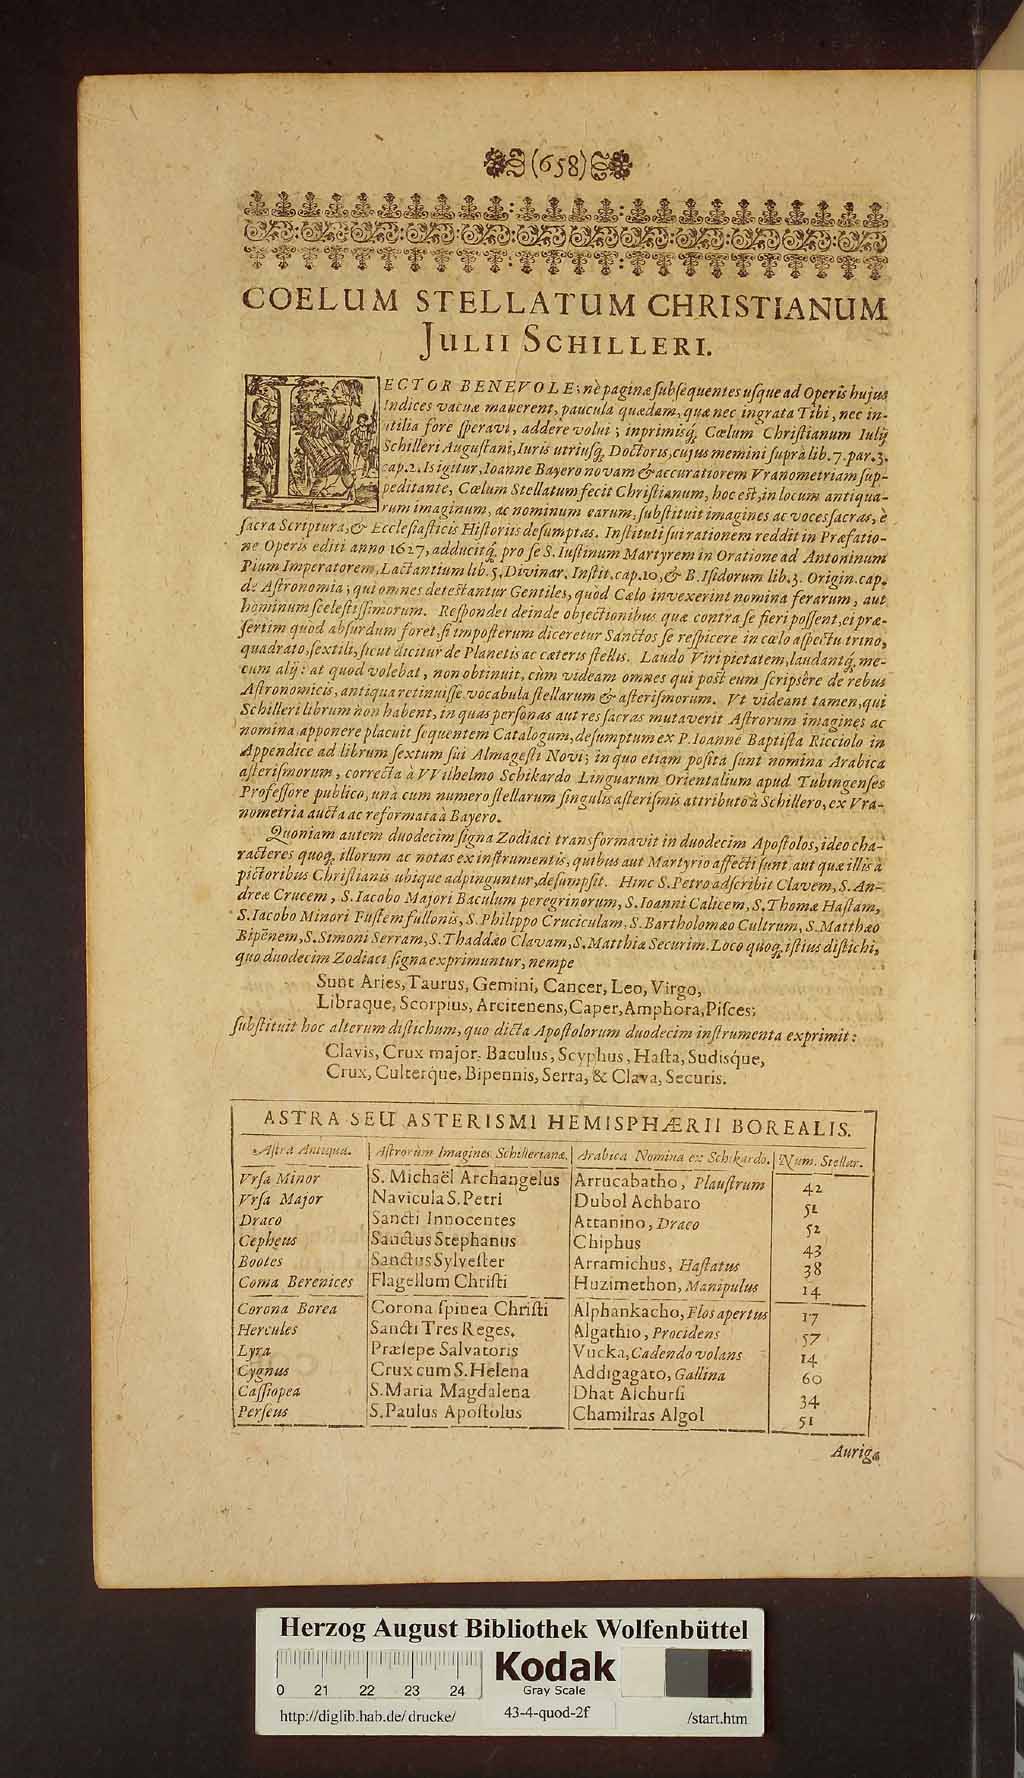 (658)
COELUM STELLATUM CHRISTIANUM
JULII SCHILLERI.
LECTOR BENEVOLE; nè paginæ subsequentes usque ad Operis hujus
Indices vacuæ manerent, paucula quædam, quæ nec ingrata Tibi, nec in-
utilia fore speravi, addere volui; inprimisq́; Cœlum Christianum Iulij
Schilleri Augustani, Iuris utriusq́; Doctoris, cujus memini suprà lib. 7. par. 3.
cap. 2. Is igitur, Ioanne Bayero novam & accuratiorem Vranometriam sup-
peditante, Cœlum Stellatum fecit Christianum, hoc est, in locum antiqua-
rum imaginum, ac nominum earum, substituit imagines ac voces sacras, è
sacra Scriptura, & Ecclesiasticis Historiis desumptas. Instituti sui rationem reddit in Præfatio-
ne Operis editi anno 1627, adducitq́; pro se S. Iustinum Martyrem in Oratione ad Antoninum
Pium Imperatorem, Lactantium lib. 5. Divinar. Instit. cap. 10, & B. Isidorum lib. 3. Origin. cap.
de Astronomia; qui omnes detestantur Gentiles, quòd Cælo invexerint nomina ferarum, aut
hominum scelestissimorum. Respondet deinde objectionibus quæ contra se fieri possent, ei præ-
sertim quod absurdum foret, si imposterum diceretur Sanctos se respicere in cœlo aspectu trino,
quadrato, sextili, sicut dicitur de Planetis ac cæteris stellis. Laudo Viri pietatem, laudantq́; me-
cum alij: at quod volebat, non obtinuit, cùm videam omnes qui post eum scripsère de rebus
Astronomicis, antiqua retinuisse vocabula stellarum & asterismorum. Vt videant tamen, qui
Schilleri librum non habent, in quas personas aut res sacras mutaverit Astrorum imagines ac
nomina, apponere placuit sequentem Catalogum, desumptum ex P. Ioanne Baptista Ricciolo in
Appendice ad librum sextum sui Almagesti Novi; in quo etiam posita sunt nomina Arabica
asterismorum, correcta à VVilhelmo Schikardo Linguarum Orientalium apud Tubingenses
Professore publico, unà cum numero stellarum singulis asterismis attributo à Schillero, ex Vra-
nometria aucta ac reformata à Bayero.
Quoniam autem duodecim signa Zodiaci transformavit in duodecim Apostolos, ideo cha-
racteres quoq́; illorum ac notas ex instrumentis, quibus aut Martyrio affecti sunt aut quæ illis à
pictoribus Christianis ubique adpinguntur, desumpsit. Hinc S. Petro adscribit Clavem, S. An-
dreæ Crucem, S. Iacobo Majori Baculum peregrinorum, S. Ioanni Calicem, S. Thomæ Hastam,
S. Iacobo Minori Fustem fullonis, S. Philippo Cruciculam, S. Bartholomæo Cultrum, S. Matthæo
Bipenem, S. Simoni Serram, S. Thaddæo Clavam, S. Matthiæ Securim. Loco quoq́; istius distichi,
quo duodecim Zodiaci signa exprimuntur, nempe
Sunt Aries, Taurus, Gemini, Cancer, Leo, Virgo,
Libraque, Scorpius, Arcitenens, Caper, Amphora, Pisces;
substituit hoc alterum distichum, quo dicta Apostolorum duodecim instrumenta exprimit:
Clavis, Crux major. Baculus, Scyphus, Hasta, Sudisque,
Crux, Culterque, Bipennis, Serra, & Clava, Securis.
ASTRA SEU ASTERISMI HEMISPHÆRII BOREALIS.
Astra Antiqua. Astrorum Imagines Schillerianæ. Arabica Nomina ex Schikardo. Num. Stellar.
Vrsa Minor S. Michaël Archangelus Arrucabatho, Plaustrum 42
Vrsa Major Navicula S. Petri Dubol Achbaro 51
Draco Sancti Innocentes Attanino, Draco 52
Cepheus Sanctus Stephanus Chiphus 43
Bootes Sanctus Sylvester Arramichus, Hastatus 38
Coma Berenices Flagellum Christi Huzimethon, Manipulus 14
Corona Borea Corona spinea Christi Alphankacho, Flos apertus 17
Hercules Sancti Tres Reges. Algathio, Procidens 57
Lyra Præsepe Salvatoris Vucka, Cadendo volans 14
Cygnus Crux cum S. Helena Addigagato, Gallina 60
Cassiopea S. Maria Magdalena Dhat Alchursi 34
Perseus S. Paulus Apostolus Chamilras Algol 51
Auriga
Herzog August Bibliothek Wolfenbüttel
Kodak
Gray Scale
0 21 22 23 24
http://diglib.hab.de/drucke/ 43-4-quod-2f /start.htm